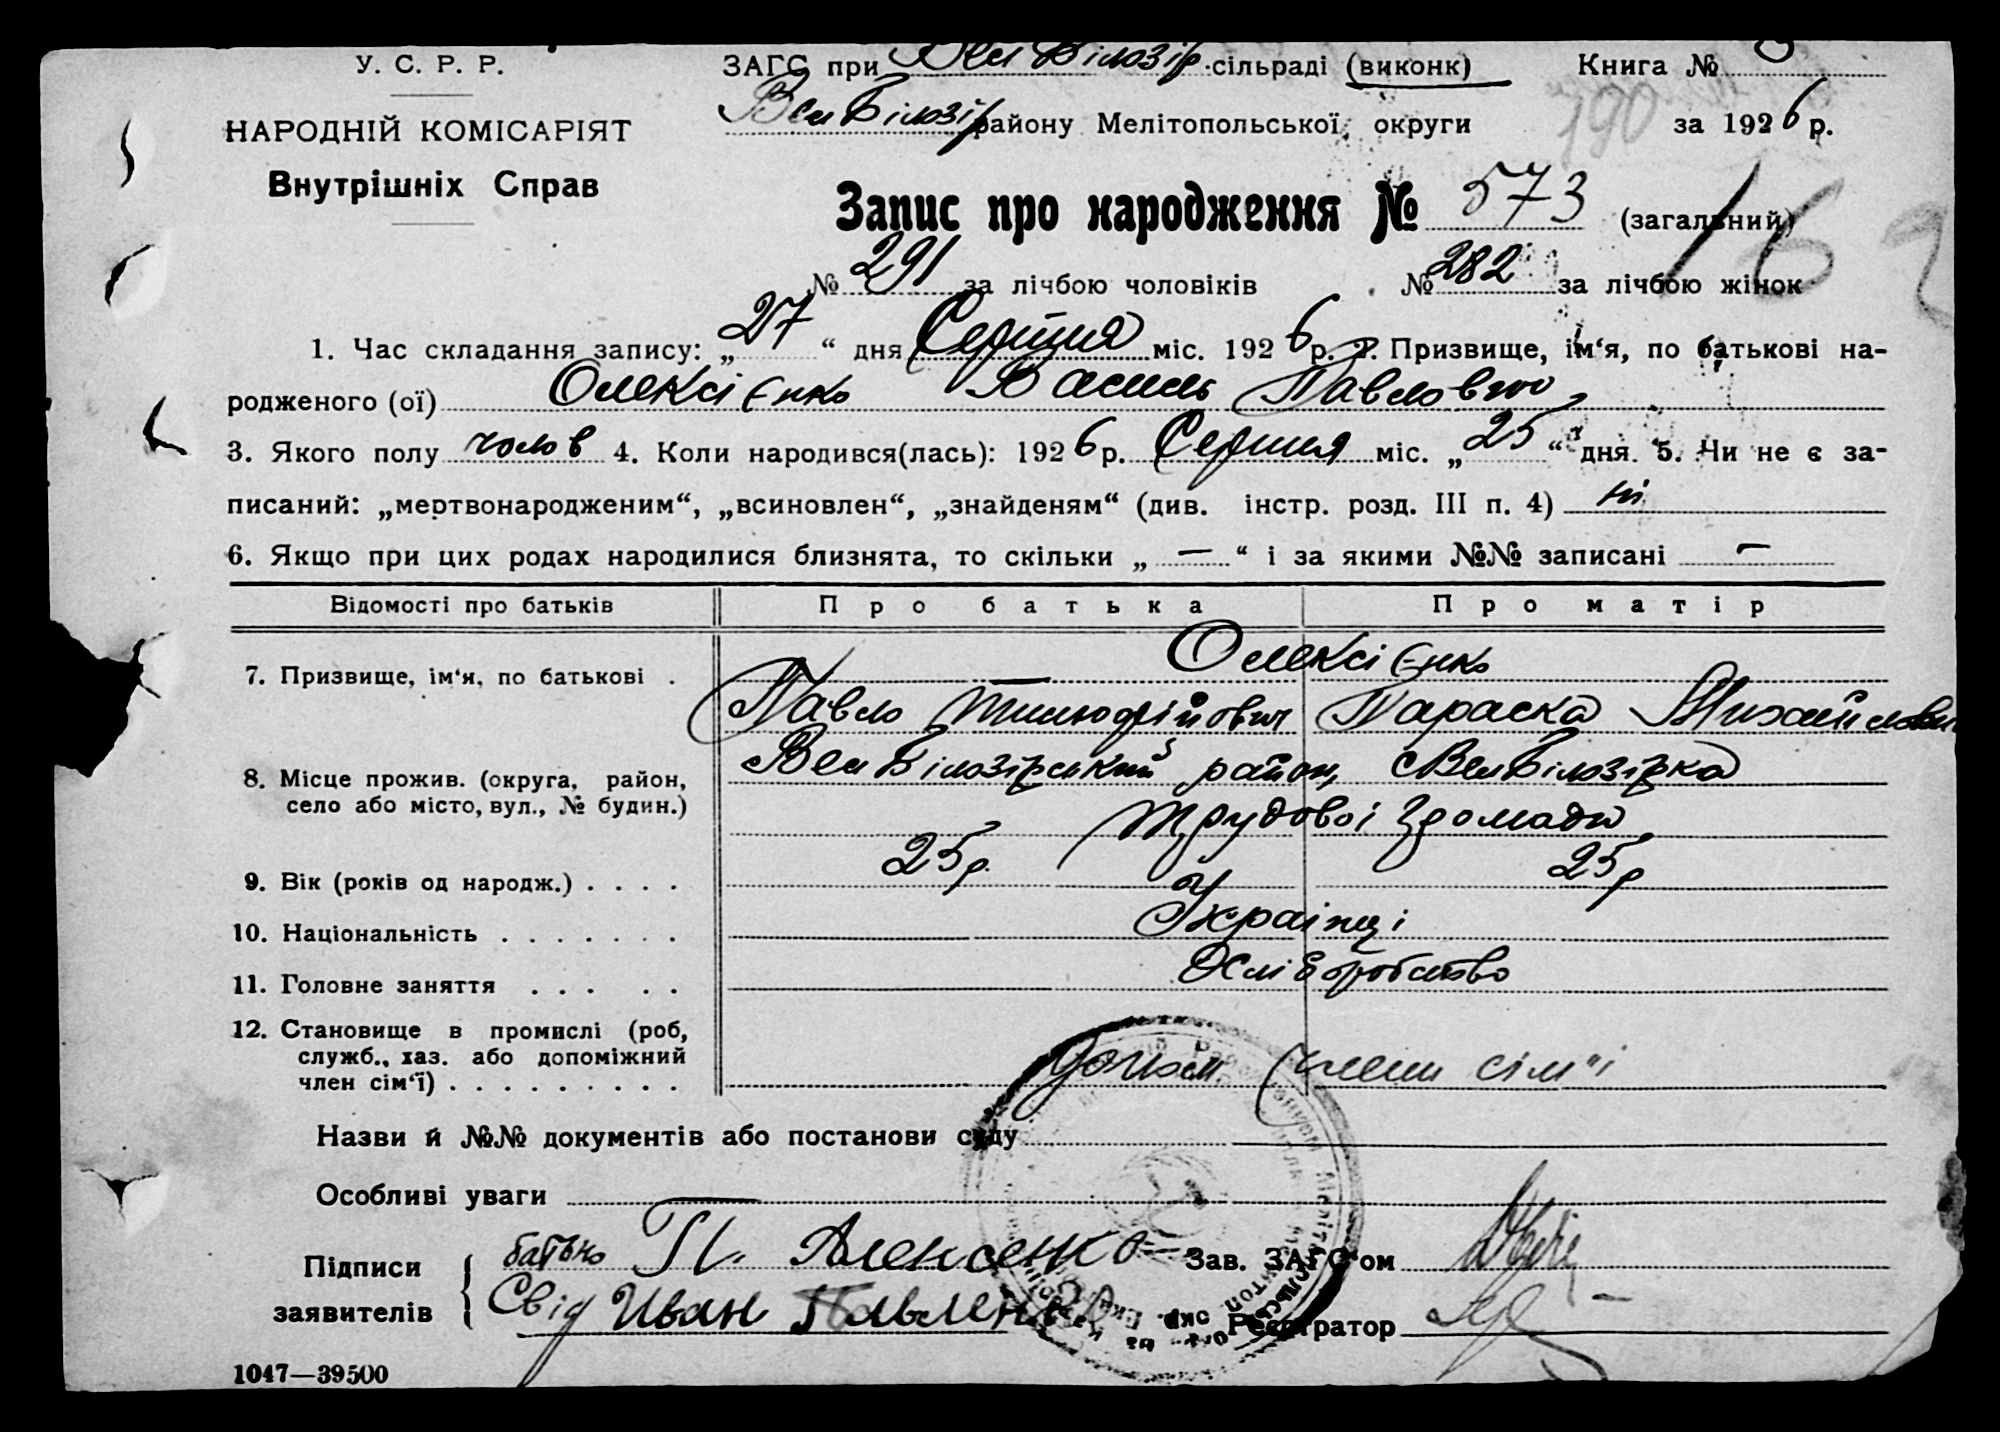 У. С. Р. Р.
НАРОДНІЙ КОМІСАРІЯТ
Внутрішніх Справ
ЗАГС при Вел Білозір. сільраді (виконк) Книга №
Вел Білозір району Мелітопольської округи за 1926 р.
190
Запис про народження № 573 (загальний)
162
№ 291 за лічбою чоловіків № 282 за лічбою жінок
1. Час складання запису: „27“ дня Серпня міс. 1926 р. 2. Призвище, ім‘я, по батькові на-
родженого (ої) Олексієнко Василь Павлович
3. Якого полу чолов 4. Коли народився(лась): 1926 р. Серпня міс. „25“ дня. 5. Чи не є за-
писаний: „мертвонародженим“, „всиновлен“, „знайденям“ (див. інстр. розд. III п. 4) ні
6. Якщо при цих родах народилися близнята, то скільки „—“ і за якими №№ записані —
Відомості про батьків Про батька Про матір
7. Призвище, ім‘я, по батькові . Олексієнко
Павло Тимофійович Параска Михайловн
8. Місце прожив. (округа, район, село або місто, вул., № будин.) Вел Білозірський район, Вел Білозірка
трудової громади
9. Вік (років од народж.) . . . . 25р. 25р
10. Національність . . . . . . . Українці
11. Головне заняття . . . . . Хліборобство
12. Становище в промислі (роб,
служб., хаз. або допоміжний
член сім‘ї) . . . . . . . . . члени сім"ї
Назви й №№ документів або постанови суду
Особливі уваги —
Підписи заявителів
батько П. Алексенко Зав. ЗАГС‘ом
Свід Иван Регістратор
1047—39500